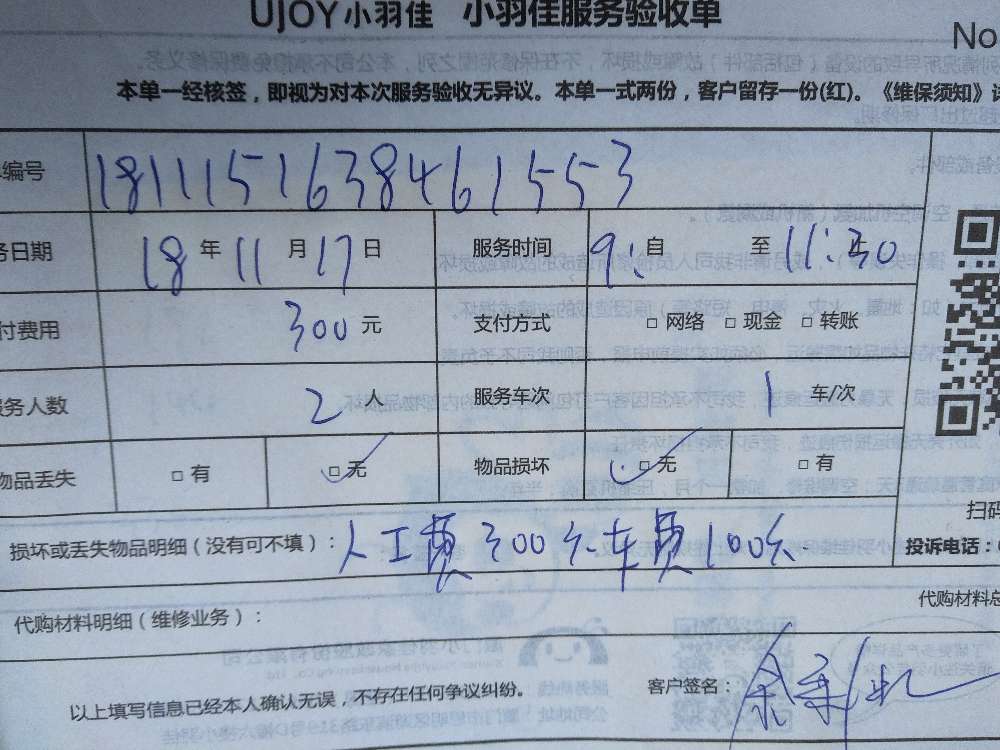 UJOY小羽佳 小羽佳服务验收单
No
本单一经核签，即视为对本次服务验收无异议。本单一式两份，客户留存一份(红)。《维保须知》
编号 1811151638461553
务日期 18年11月17日 服务时间 9: 自 至 11:30
付费用 300元 支付方式 □网络 □现金 □转账
服务人数 2人 服务车次 1车/次
物品丢失 □有 □无 物品损坏 □无 □有
扫码
损坏或丢失物品明细（没有可不填）：人工费300元.车费100元. 投诉电话：
代购材料明细（维修业务）： 代购材料总
以上填写信息已经本人确认无误，不存在任何争议纠纷。 客户签名：